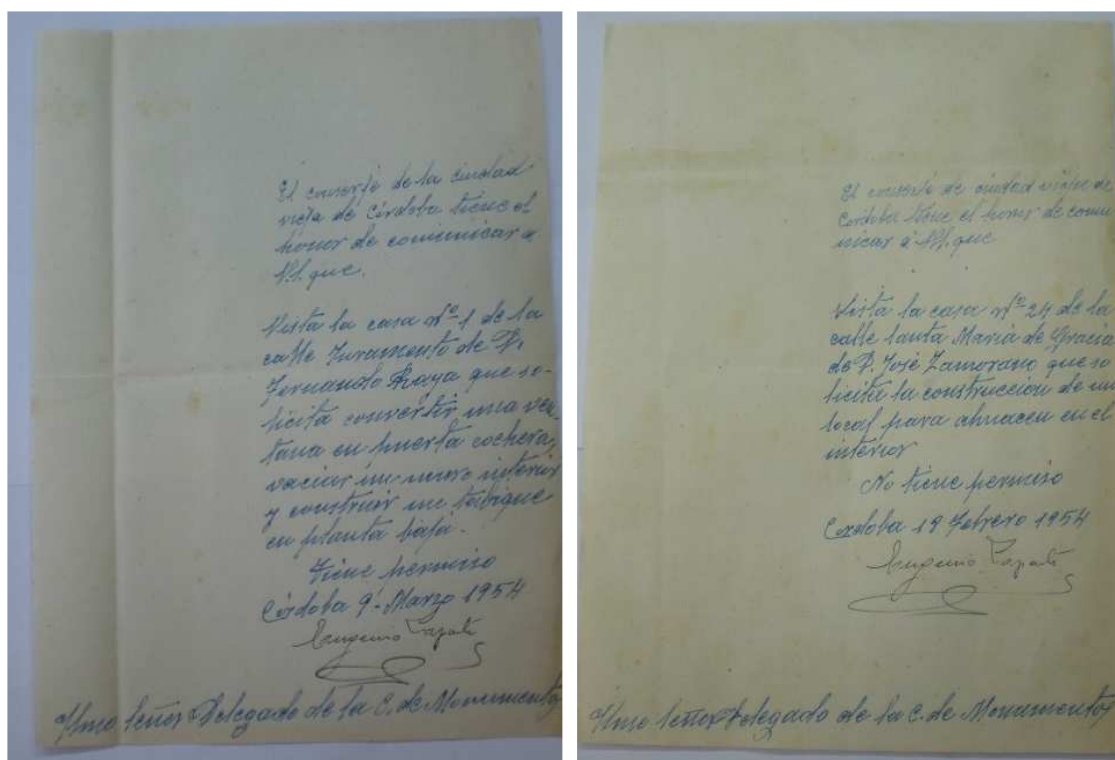 El conserje de la ciudad
vieja de Córdoba tiene el
honor de comunicar a
V.I. que.
Visita la casa nº 1 de la
calle Juramento de D.
Fernando Raya que so-
licita convertir una ven-
tana en puerta cochera,
vaciar un muro interior
y construir un tabique
en planta baja.
Tiene permiso
Córdoba 9 Marzo 1954
Eugenio
Ilmo Señor Delegado de la C. de Monumentos
El conserje de ciudad vieja de
Córdoba tiene el honor de comu
nicar a V.I. que
Visita la casa nº 24 de la
calle Santa Maria de Gracia
de D. José Zamorano que so
licita la construccion de un
local para almacen en el
interior
No tiene permiso
Córdoba 19 Febrero 1954
Eugenio
Ilmo Señor Delegado de la C. de Monumentos